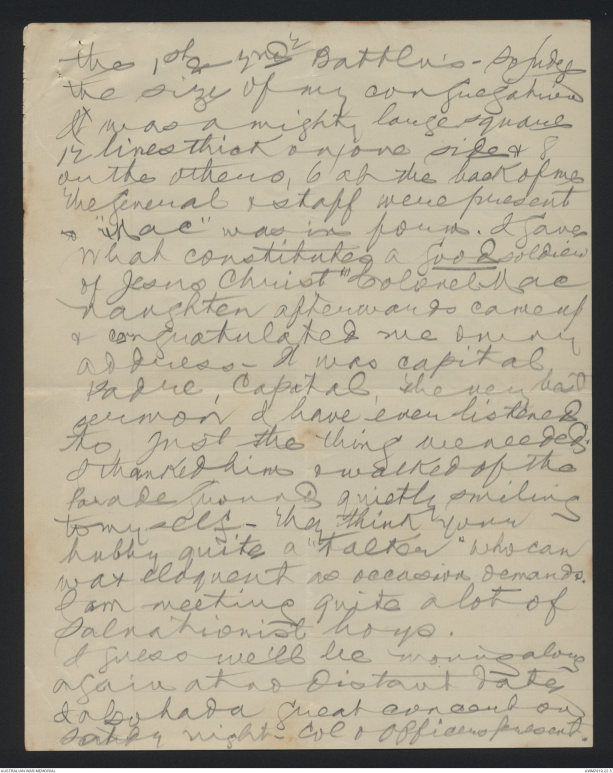 the 1st & 2nd Battln's - So judge
the size of my congregation
It was a mighty large square
12 lines thick on one side & 8
on the others, 6 at the back of me
The General & staff were present
& "Mac" was in form. I gave
What constitutes a good soldier
of Jesus Christ" Colonel Mac
naughten afterwards came up
& congratulated me on my
address - It was capital
Padre, Capital, the very best
sermon I have ever listened
to Just the thing we needed.
I thanked him & walked of the
Parade Ground quietly smiling
to myself - They think your
hubby quite a "talker" who can
wax eloquent as occasion demands.
I am meeting quite a lot of
Salvationist boys.
I guess we'll be moving along
again at no distant date
& also had a great concert on
night - Col & Officers present.
AUSTRALIAN WAR MEMORIAL